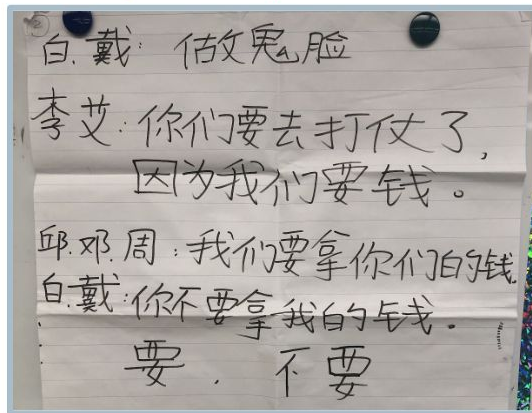 白.戴: 做鬼脸
李艾:你们要去打仗了,
因为我们要钱。
邱.邓.周:我们要拿你们的钱.
白.戴:你不要拿我的钱.
要. 不要